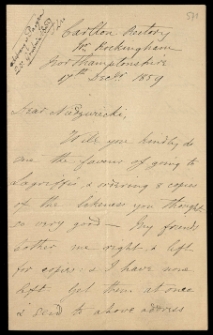 Carlton Rectory
Rockingham
Northamptonshire
17th Decr 1859
Dear
Will you kindly do
me the favour of going to
& ordering 8 copies
of the likeness you thought
so very good — My friends
bother me right & left
for copies & I have none
left. Get them at once
& send to above address